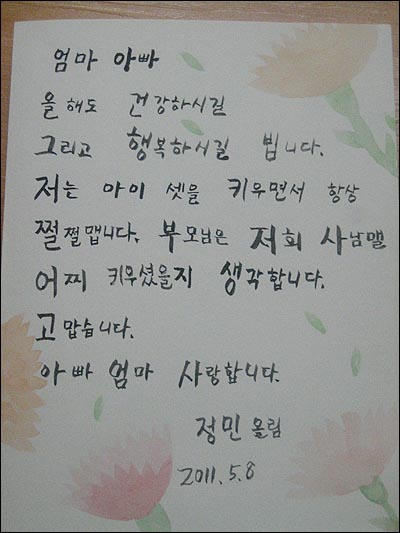 엄마 아빠
올해도 건강하시길
그리고 행복하시길 빕니다.
저는 아이 셋을 키우면서 항상
쩔쩔맵니다. 부모님은 저희 사남맬
어찌 키우셨을지 생각합니다.
고맙습니다.
아빠 엄마 사랑합니다.
정민 올림
2011.5.8